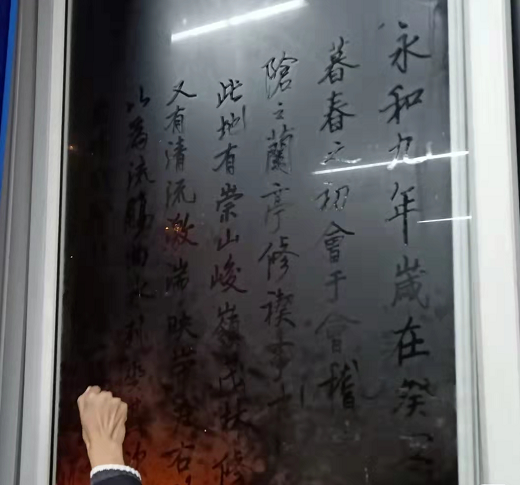 永和九年歲在癸
暮春之初會于會稽
陰之蘭亭修禊事
此地有崇山峻嶺茂林修
又有清流激湍映帶左右
以為流觴曲水列坐其次